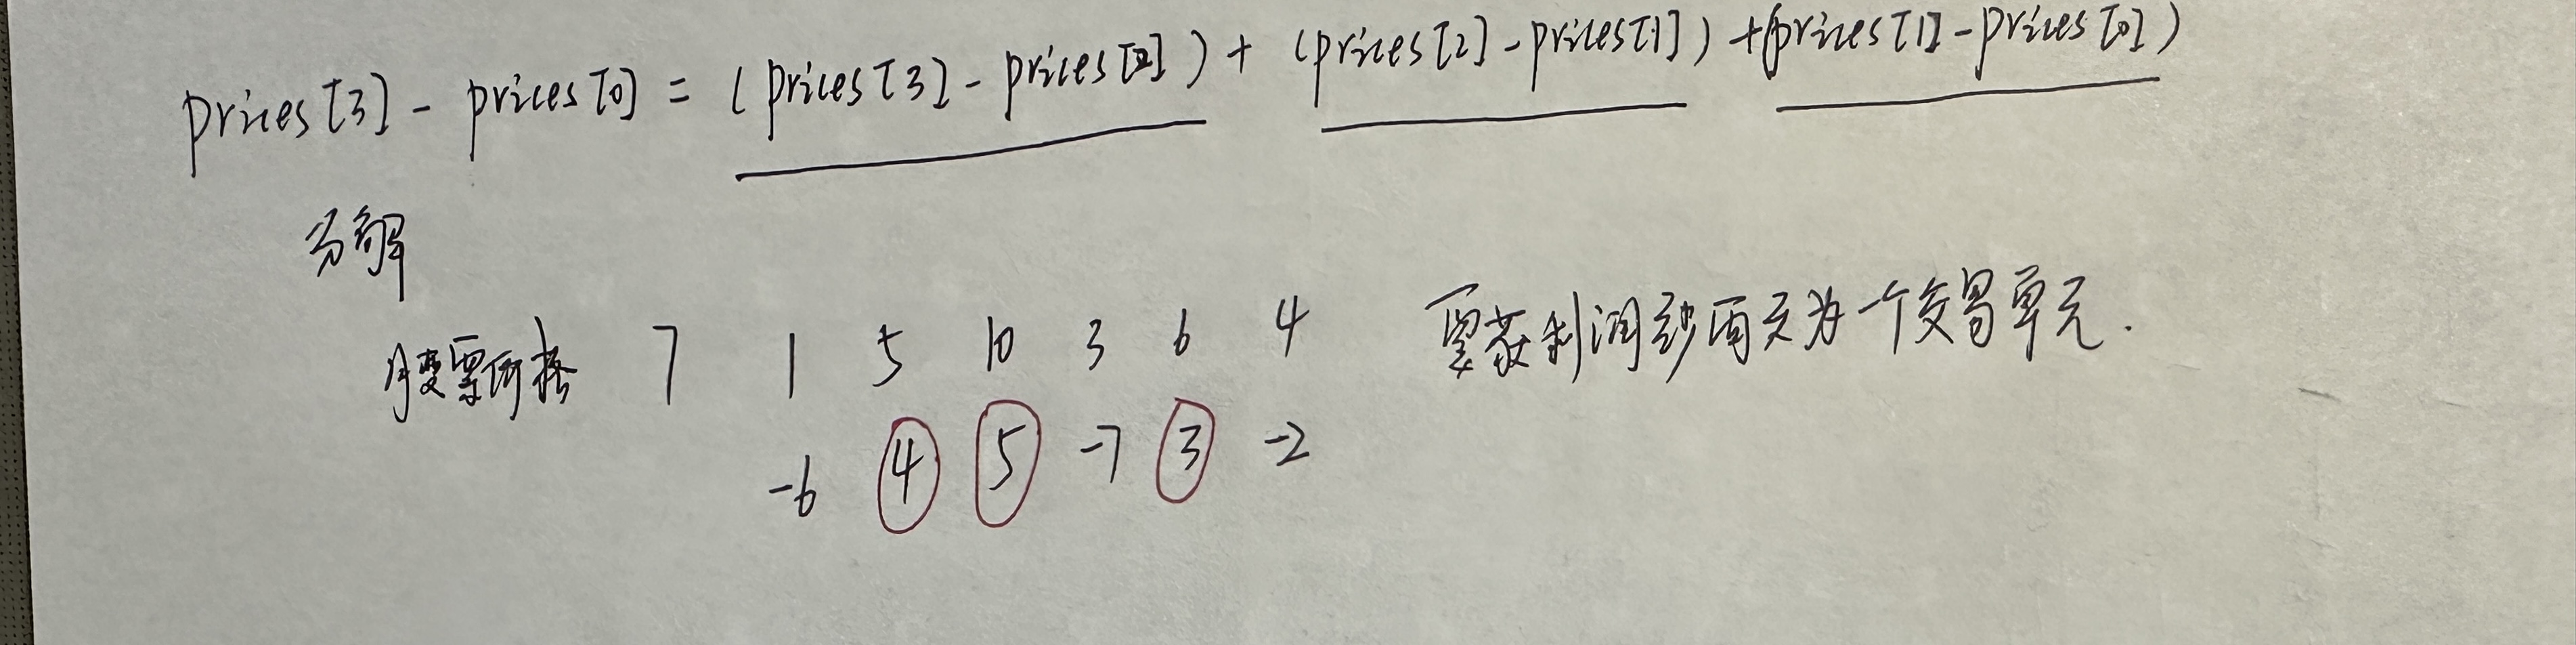 prices[3] - prices[0] = (prices[3] - prices[2]) + (prices[2] - prices[1]) + (prices[1] - prices[0])
分解
股票价格 7 1 5 10 3 6 4 要获利润至少两天为一个交易单元.
-6 4 5 -7 3 -2